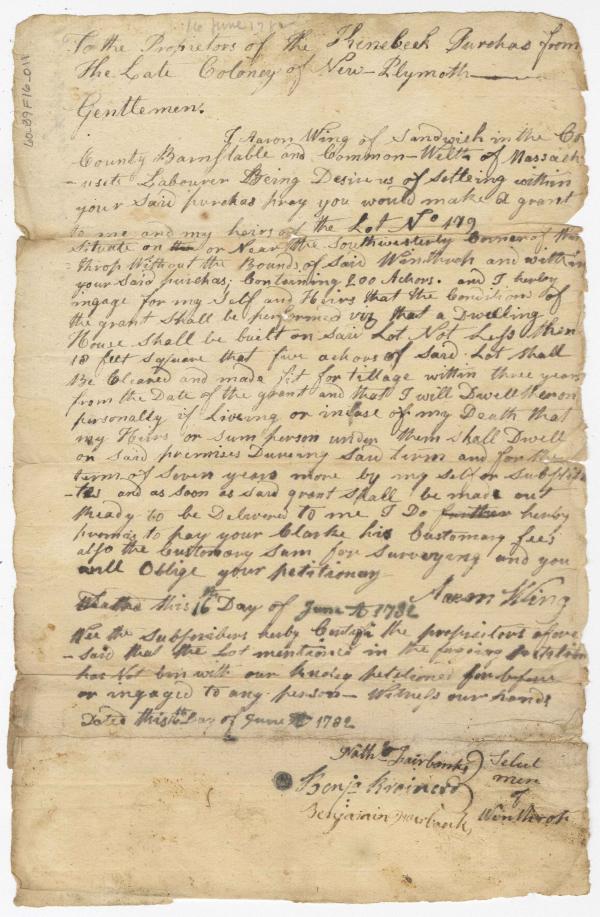 16 June 1782
60-89 F16-011
To the Proprietors of the Kenebeck Purchas from
the Late Coloney of New-Plymoth
Gentlemen.
I Aaron Wing of Sandwich in the Co
County Barnstable and Common-Welth of Massach
-usets Labourer Being Desireus of Settering within
your Said purchas pray you would make a grant
to me and my heirs of the Lot No 149
situate on or Near the Southwesterly Corner of Win
throp Without the Bounds of Said Winthrop and within
your Said purchas; Containing 200 Achors. and I herby
ingage for my Self and Heirs that the Conditions of
the grant Shall be performed viz that a Dwelling
House Shall be built on Said Lot Not Less then
18 feet Sqware that five achors of Said Lot Shall
Be Cleared and made fit for tillage within three years
from the Date of the grant and that I will Dwell theron
personally if Liveing or in Case of my Death that
my Heirs or Sum person under them Shall Dwell
on Said premises Dureing Said term and for the
term of Seven years more by my Self or Substit
-tes and as soon as said grant Shall be made out
Ready to be Delivered to me I Do further herby
promis to pay your Clarke his Customary fees
also the Customary Sum for Surveying and you
will Oblige your petitioner
Aaron Wing
Dated this 16th Day of June AD 1782
Wee the Subscribers herby Certify the propriotors afore
-said that the Lot mentioned in the foregoing petition
has Not bin with our Knoleg petitioned for before
or ingaged to any person- Witness our hands
Dated this 16th Day of June AD 1782
Nathll Fairbanks
Benja Brainerd
Benjamin Fairbanks
Select
men
of
Winthrop